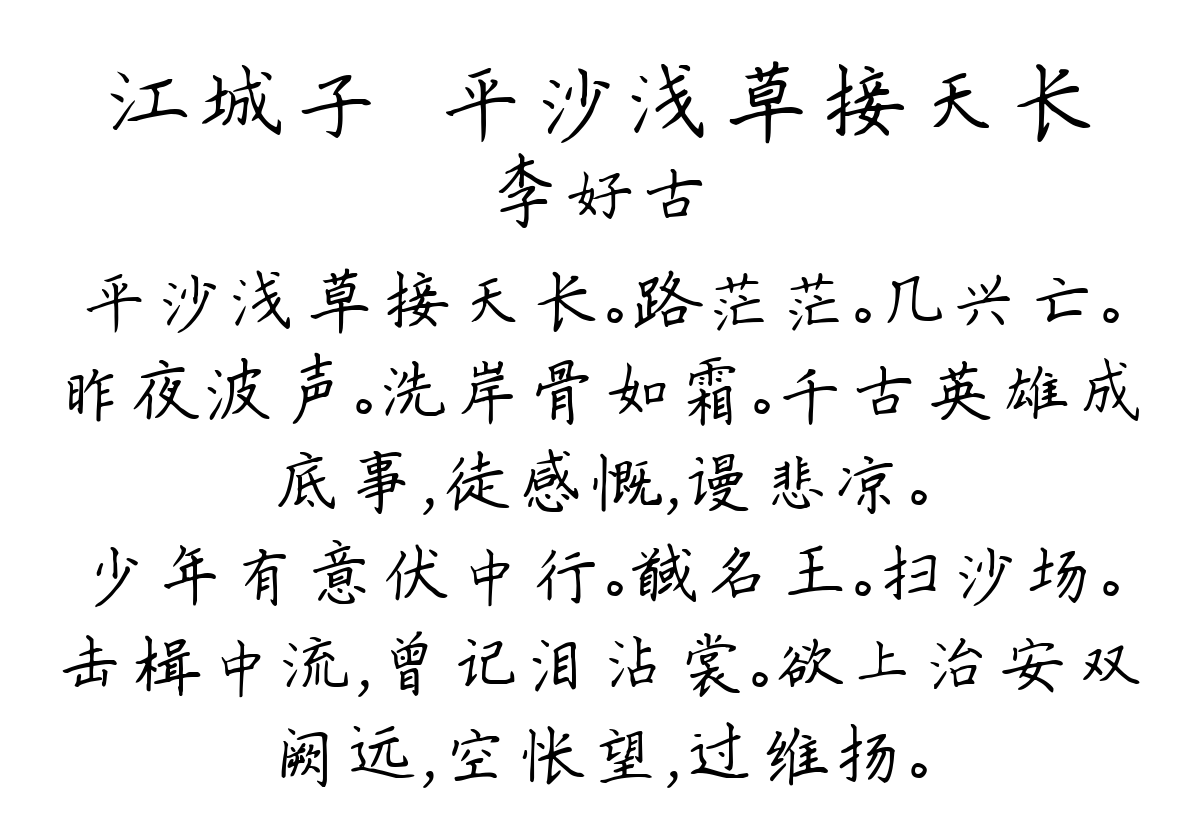 江城子 平沙浅草接天长
李好古
平沙浅草接天长。路茫茫。几兴亡。
昨夜波声。洗岸骨如霜。千古英雄成
底事,徒感慨,谩悲凉。
少年有意伏中行。馘名王。扫沙场。
击楫中流,曾记泪沾裳。欲上治安双
阙远,空怅望,过维扬。